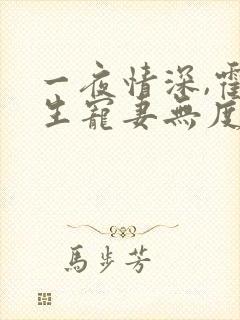 一夜情深,霍
生寵妻無度
馬步芳